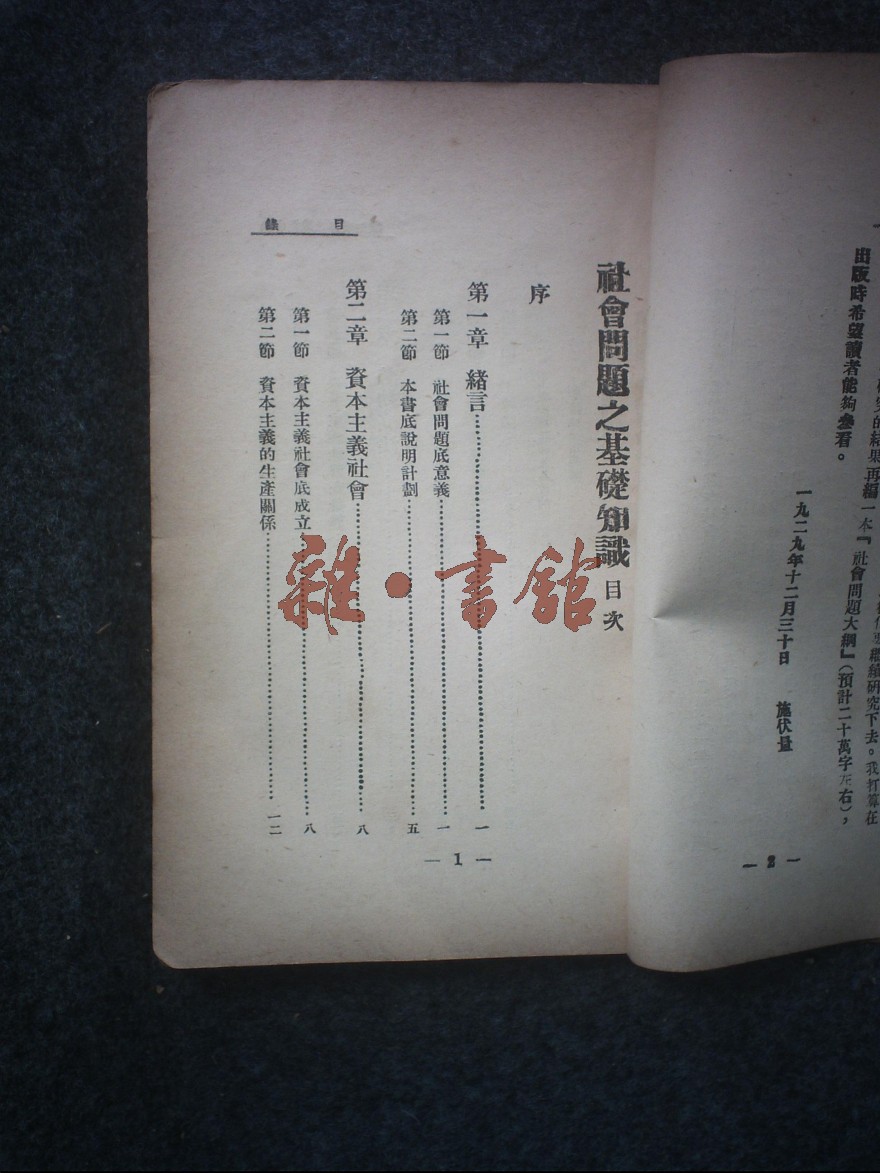 究的結果再編一本『社會問題大綱』(預計二十萬字左右),
出版時希望讀者能夠參看。
一九二九年十二月三十日 施伏量
— 2 —
目錄
社會問題之基礎知識 目次
序
第一章 緒言……一
第一節 社會問題底意義……一
第二節 本書底說明計劃……五
第二章 資本主義社會……八
第一節 資本主義社會底成立……八
第二節 資本主義的生產關係……一二
— 1 —
雜·書館